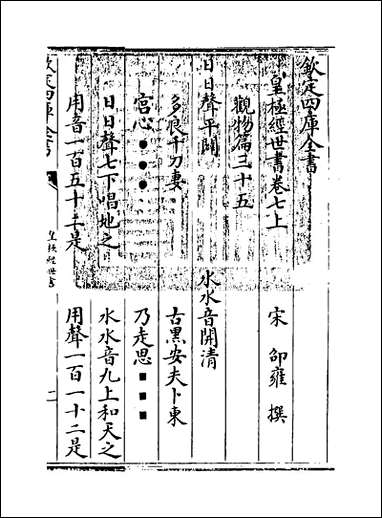 欽定四庫全書
皇極經世書卷七上
宋　邵雍　撰
觀物篇三十五
日日聲平闢　水水音開清
多良千刀妻　古黒安夫卜東
宮心●●●　乃走思■■■
日日聲七下唱地之　水水音九上和天之
用音一百五十二是　用聲一百一十二是
欽定四庫全書
皇極經世書